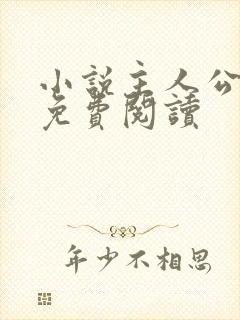 小說主人公
免費閱讀
年少不相思